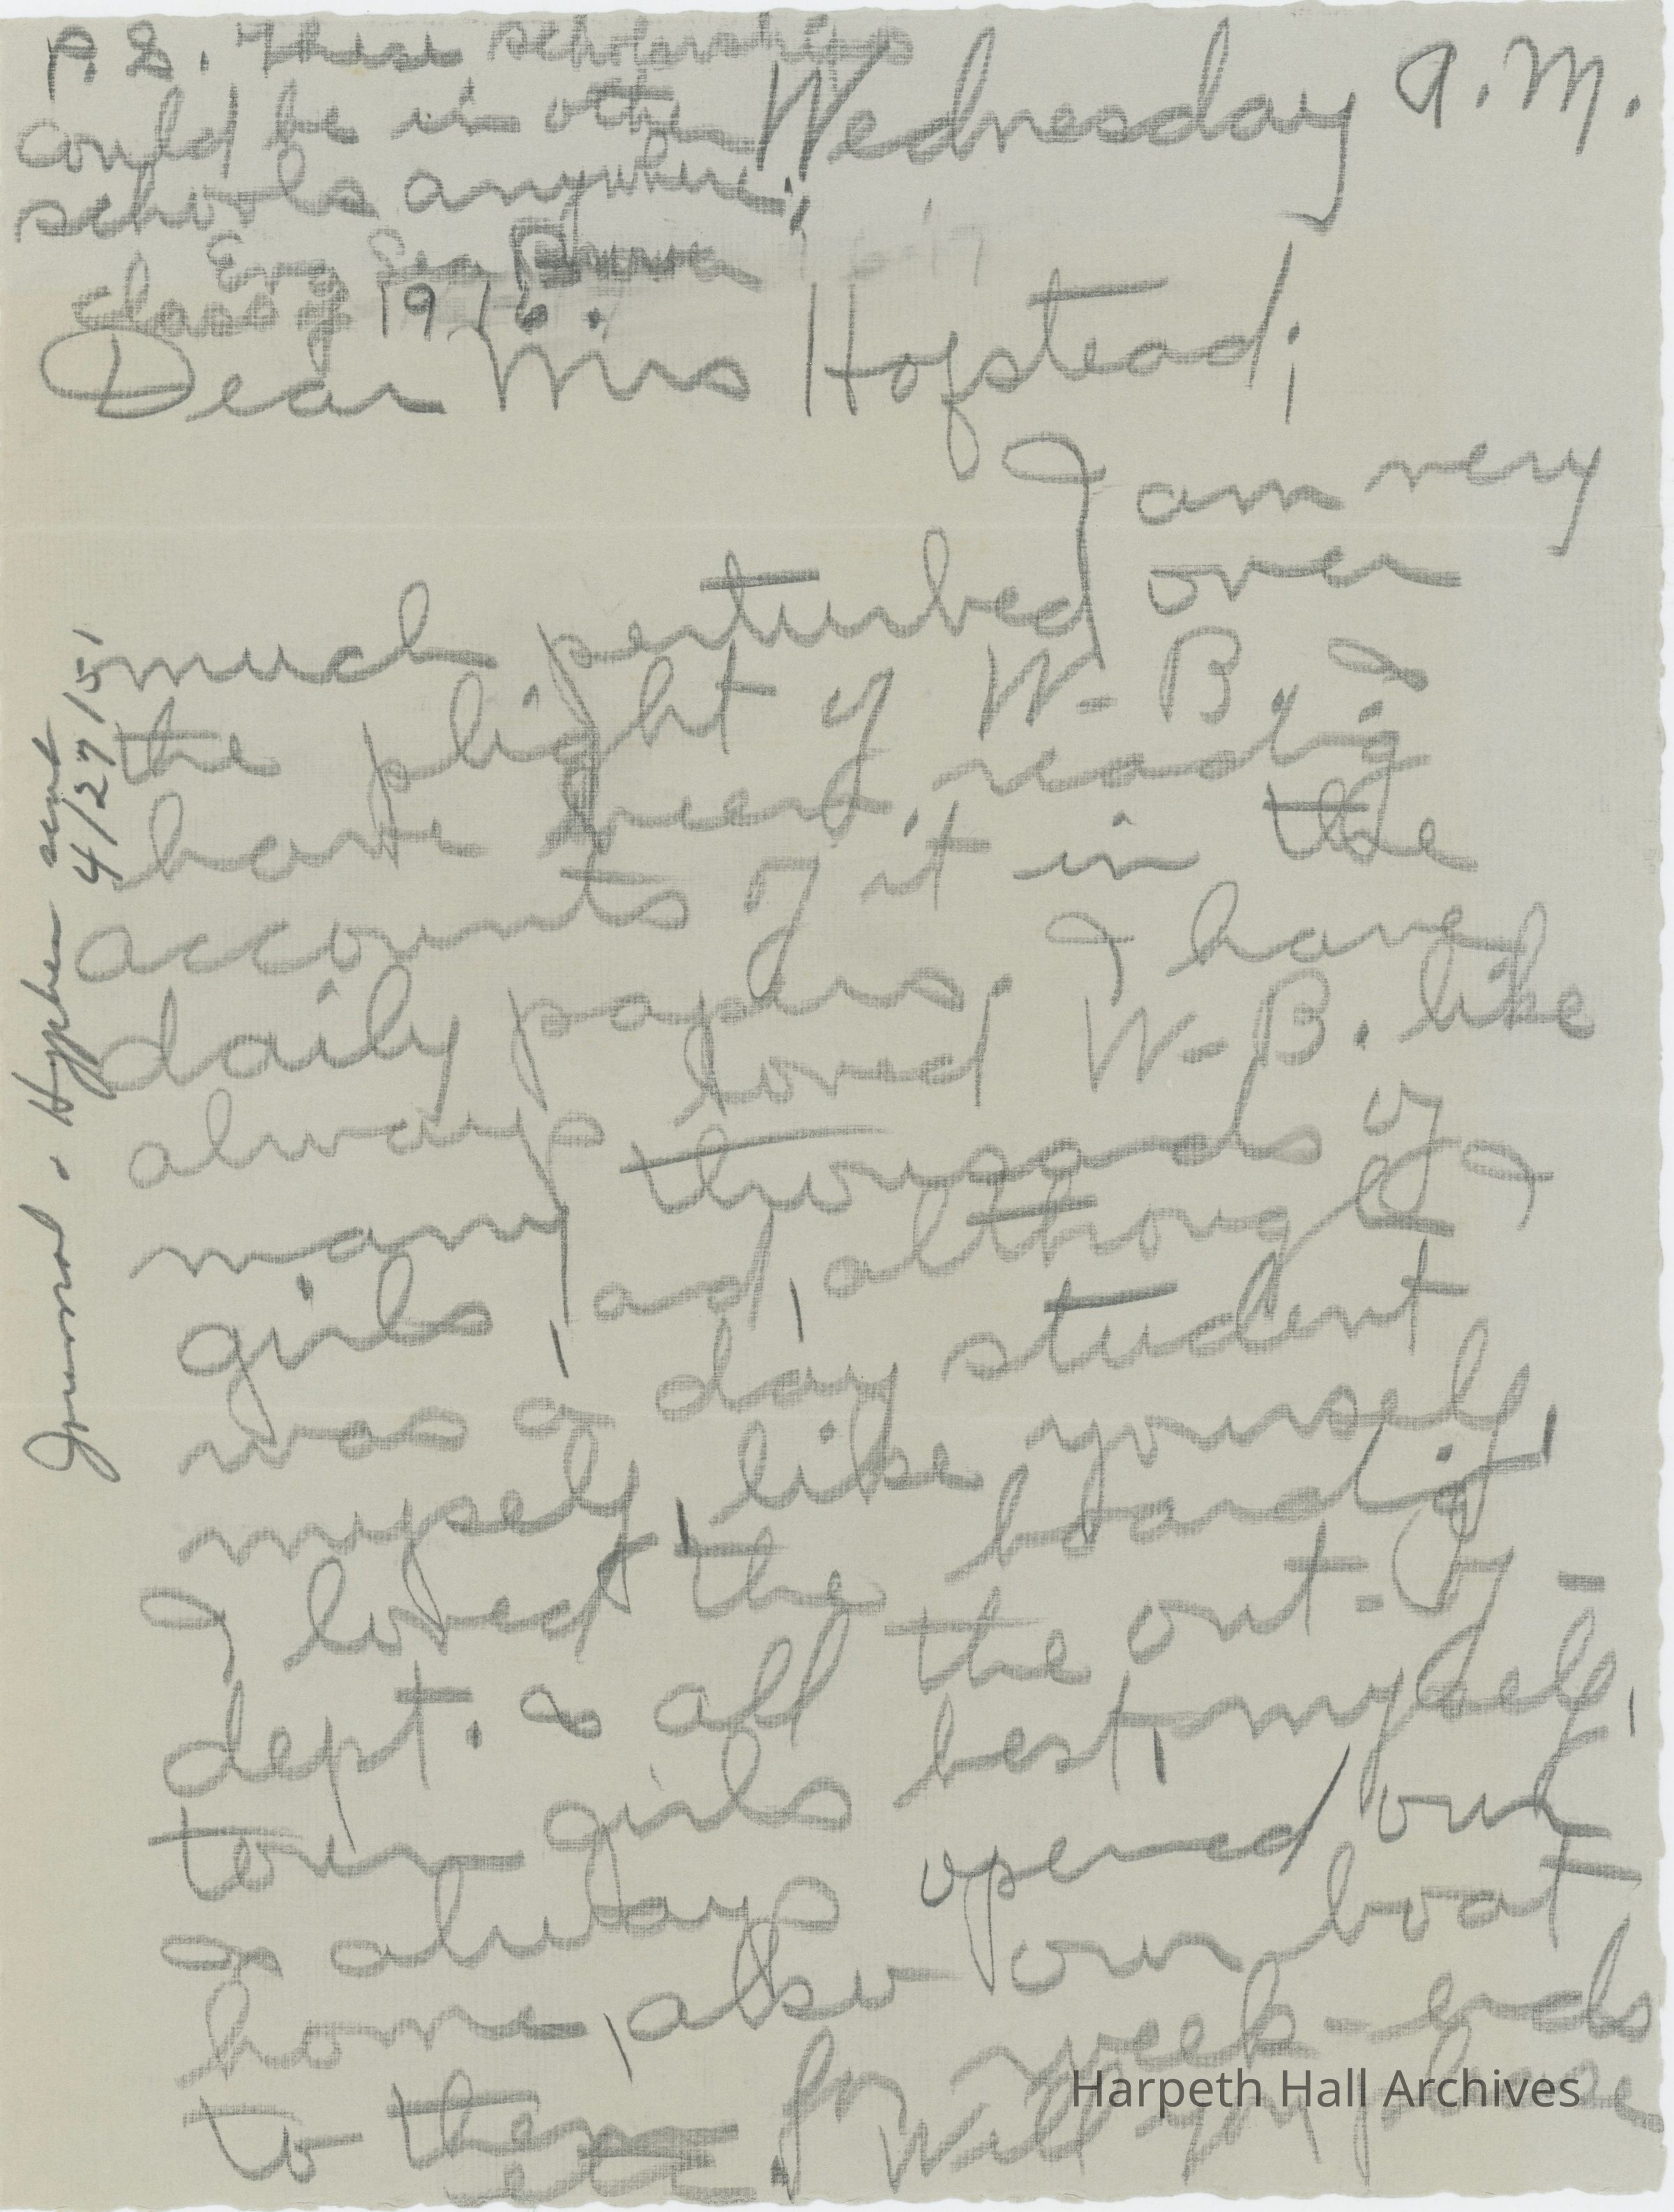 P.S. These scholarships
could be in other
schools anywhere.
class of 1916.
Wednesday A.M.
Dear Miss Hofstead;
I am very
much perturbed over
the plight of W-B. I
have been reading
accounts of it in the
daily papers. I have
always loved W-B. like
many thousands of
girls, and, although I
was a day student
myself, like yourself,
I loved the boarding
dept. & all the out-of-
town girls best, myself,
& always opened our
home, also our boat
to them for week-ends
etc. Will you please
Journal · Hyphen sent
4/27/51
Harpeth Hall Archives